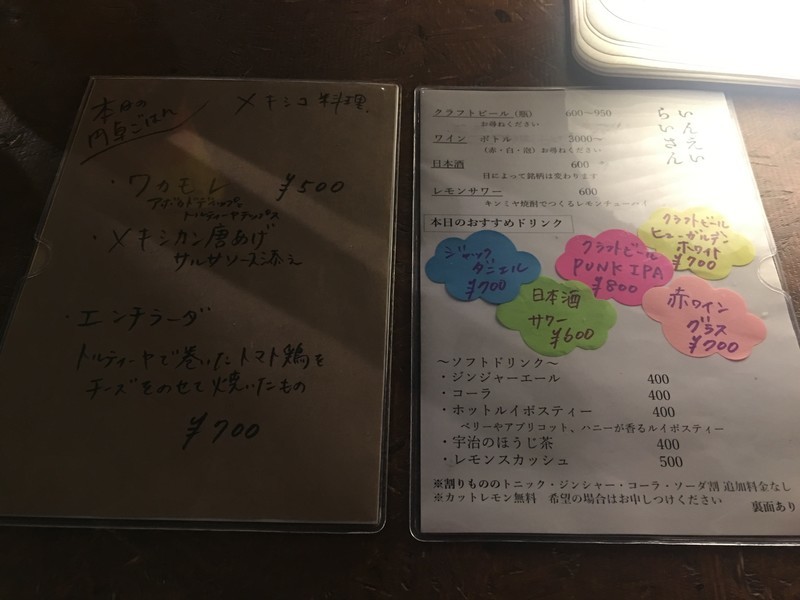 本日の
円卓ごはん
メキシコ料理
・ワカモレ ¥500
アボカドディップ。
トルティーヤチップス
・メキシカン唐あげ
サルサソース添え
・エンチラーダ
トルティーヤで巻いたトマト鶏を
チーズをのせて焼いたもの
¥700
いんえい
らいさん
クラフトビール（瓶） 600〜950
お尋ねください
ワイン ボトル 3000〜
（赤・白・泡）お尋ねください
日本酒 600
日によって銘柄は変わります
レモンサワー 600
キンミヤ焼酎でつくるレモンチューハイ
本日のおすすめドリンク
クラフトビール
ヒューガルデン
ホワイト
¥700
ジャック
ダニエル
¥700
クラフトビール
PUNK IPA
¥800
日本酒
サワー
¥600
赤ワイン
グラス
¥700
〜ソフトドリンク〜
・ジンジャーエール 400
・コーラ 400
・ホットルイボスティー 400
ベリーやアプリコット、ハニーが香るルイボスティー
・宇治のほうじ茶 400
・レモンスカッシュ 500
※割りもののトニック・ジンジャー・コーラ・ソーダ割 追加料金なし
※カットレモン無料 希望の場合はお申しつけください
裏面あり